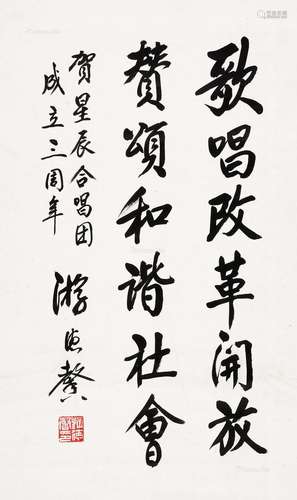 歌唱改革開放
赞頌和谐社會
贺星辰合唱团
成立三周年
游德馨